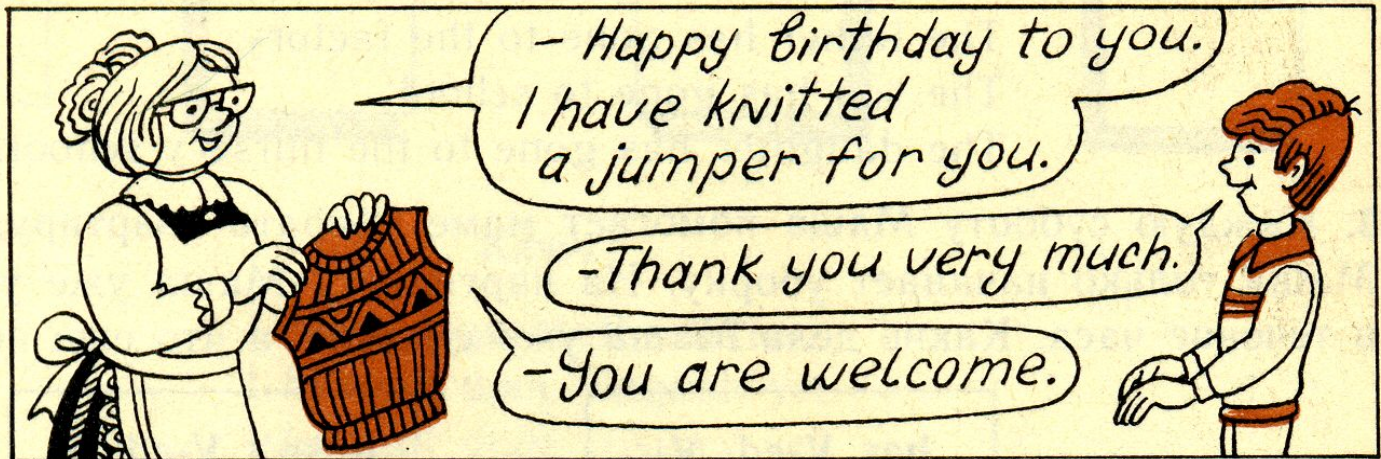 - Happy birthday to you.
I have knitted
a jumper for you.
- Thank you very much.
- You are welcome.